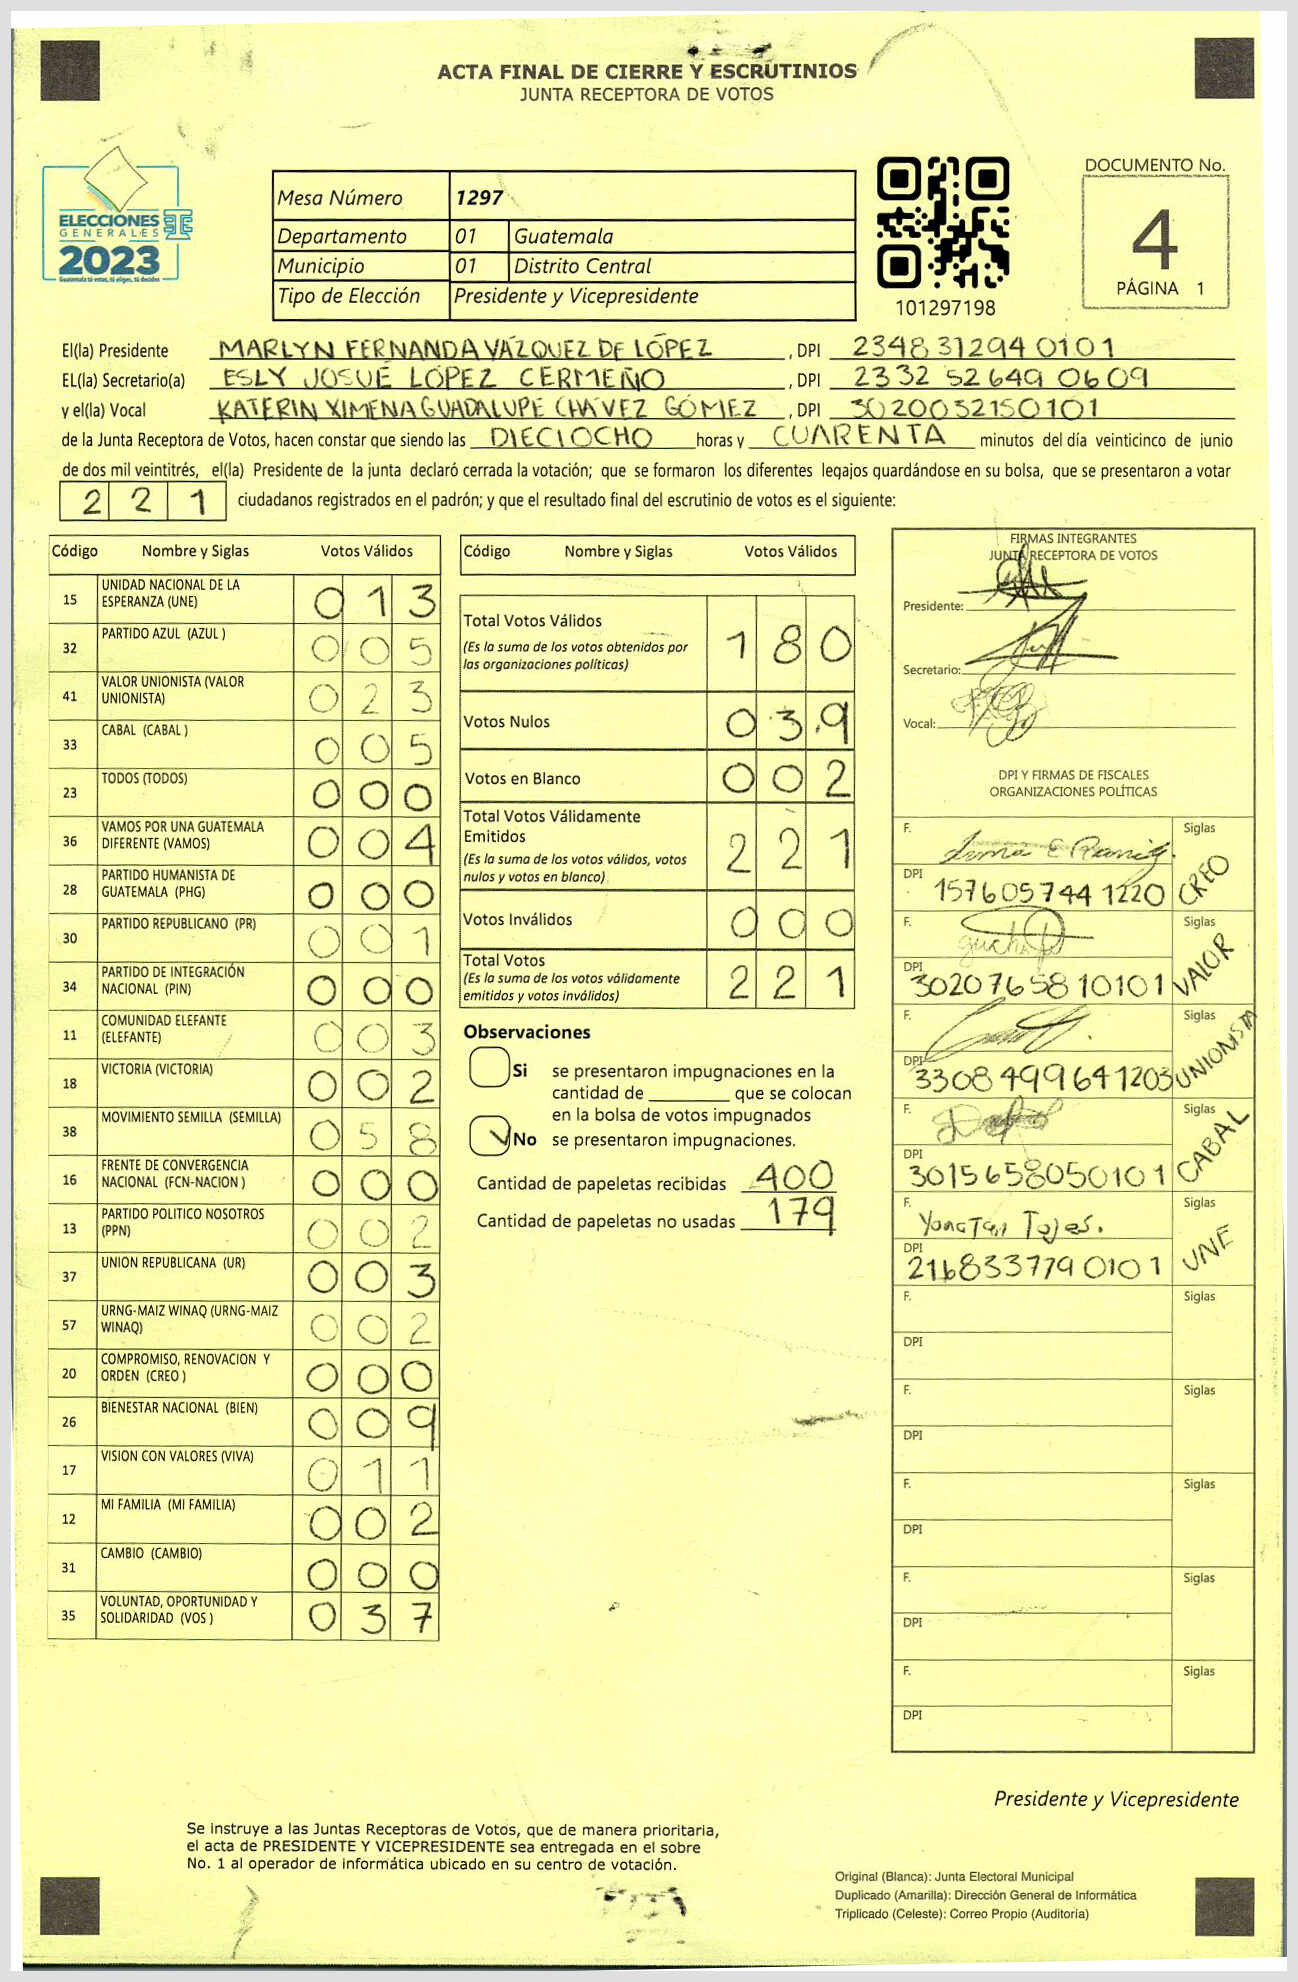 ACTA FINAL DE CIERRE Y ESCRUTINIOS
JUNTA RECEPTORA DE VOTOS
ELECCIONES
GENERALES
2023
Guatemala tú votas, tú eliges, tú decides
Mesa Número 1297
Departamento 01 Guatemala
Municipio 01 Distrito Central
Tipo de Elección Presidente y Vicepresidente
101297198
DOCUMENTO No.
4
PÁGINA 1
El(la) Presidente MARLYN FERNANDA VÁZQUEZ DE LÓPEZ, DPI 2348 31294 0101
EL(la) Secretario(a) ESLY JOSUÉ LÓPEZ CERMEÑO, DPI 2332 52649 0609
y el(la) Vocal KATERIN XIMENA GUADALUPE CHÁVEZ GÓMEZ, DPI 3020032150101
de la Junta Receptora de Votos, hacen constar que siendo las DIECIOCHO horas y CUARENTA minutos del día veinticinco de junio
de dos mil veintitrés, el(la) Presidente de la junta declaró cerrada la votación; que se formaron los diferentes legajos guardándose en su bolsa, que se presentaron a votar
221 ciudadanos registrados en el padrón; y que el resultado final del escrutinio de votos es el siguiente:
Código Nombre y Siglas Votos Válidos
15 UNIDAD NACIONAL DE LA ESPERANZA (UNE) 013
32 PARTIDO AZUL (AZUL ) 005
41 VALOR UNIONISTA (VALOR UNIONISTA) 023
33 CABAL (CABAL ) 005
23 TODOS (TODOS) 000
36 VAMOS POR UNA GUATEMALA DIFERENTE (VAMOS) 004
28 PARTIDO HUMANISTA DE GUATEMALA (PHG) 000
30 PARTIDO REPUBLICANO (PR) 001
34 PARTIDO DE INTEGRACIÓN NACIONAL (PIN) 000
11 COMUNIDAD ELEFANTE (ELEFANTE) 003
18 VICTORIA (VICTORIA) 002
38 MOVIMIENTO SEMILLA (SEMILLA) 058
16 FRENTE DE CONVERGENCIA NACIONAL (FCN-NACION ) 000
13 PARTIDO POLITICO NOSOTROS (PPN) 002
37 UNION REPUBLICANA (UR) 003
57 URNG-MAIZ WINAQ (URNG-MAIZ WINAQ) 002
20 COMPROMISO, RENOVACION Y ORDEN (CREO ) 000
26 BIENESTAR NACIONAL (BIEN) 009
17 VISION CON VALORES (VIVA) 011
12 MI FAMILIA (MI FAMILIA) 002
31 CAMBIO (CAMBIO) 000
35 VOLUNTAD, OPORTUNIDAD Y SOLIDARIDAD (VOS ) 037
Código Nombre y Siglas Votos Válidos
Total Votos Válidos 180
(Es la suma de los votos obtenidos por
las organizaciones políticas)
Votos Nulos 039
Votos en Blanco 002
Total Votos Válidamente
Emitidos 221
(Es la suma de los votos válidos, votos
nulos y votos en blanco)
Votos Inválidos 000
Total Votos 221
(Es la suma de los votos válidamente
emitidos y votos inválidos)
Observaciones
Si se presentaron impugnaciones en la
cantidad de ________ que se colocan
en la bolsa de votos impugnados
No se presentaron impugnaciones.
Cantidad de papeletas recibidas 400
Cantidad de papeletas no usadas 179
FIRMAS INTEGRANTES
JUNTA RECEPTORA DE VOTOS
Presidente:
Secretario:
Vocal:
DPI Y FIRMAS DE FISCALES
ORGANIZACIONES POLÍTICAS
F. Siglas
DPI 157605744 1220 CREO
F. Siglas
DPI 3020765810101 VALOR
F. Siglas
DPI 3308499641203 UNIONISTA
F. Siglas
DPI 3015658050101 CABAL
F. Siglas
DPI 2168337790101 UNE
F. Siglas
DPI
F. Siglas
DPI
F. Siglas
DPI
F. Siglas
DPI
F. Siglas
DPI
Presidente y Vicepresidente
Se instruye a las Juntas Receptoras de Votos, que de manera prioritaria,
el acta de PRESIDENTE Y VICEPRESIDENTE sea entregada en el sobre
No. 1 al operador de informática ubicado en su centro de votación.
Original (Blanca): Junta Electoral Municipal
Duplicado (Amarilla): Dirección General de Informática
Triplicado (Celeste): Correo Propio (Auditoria)